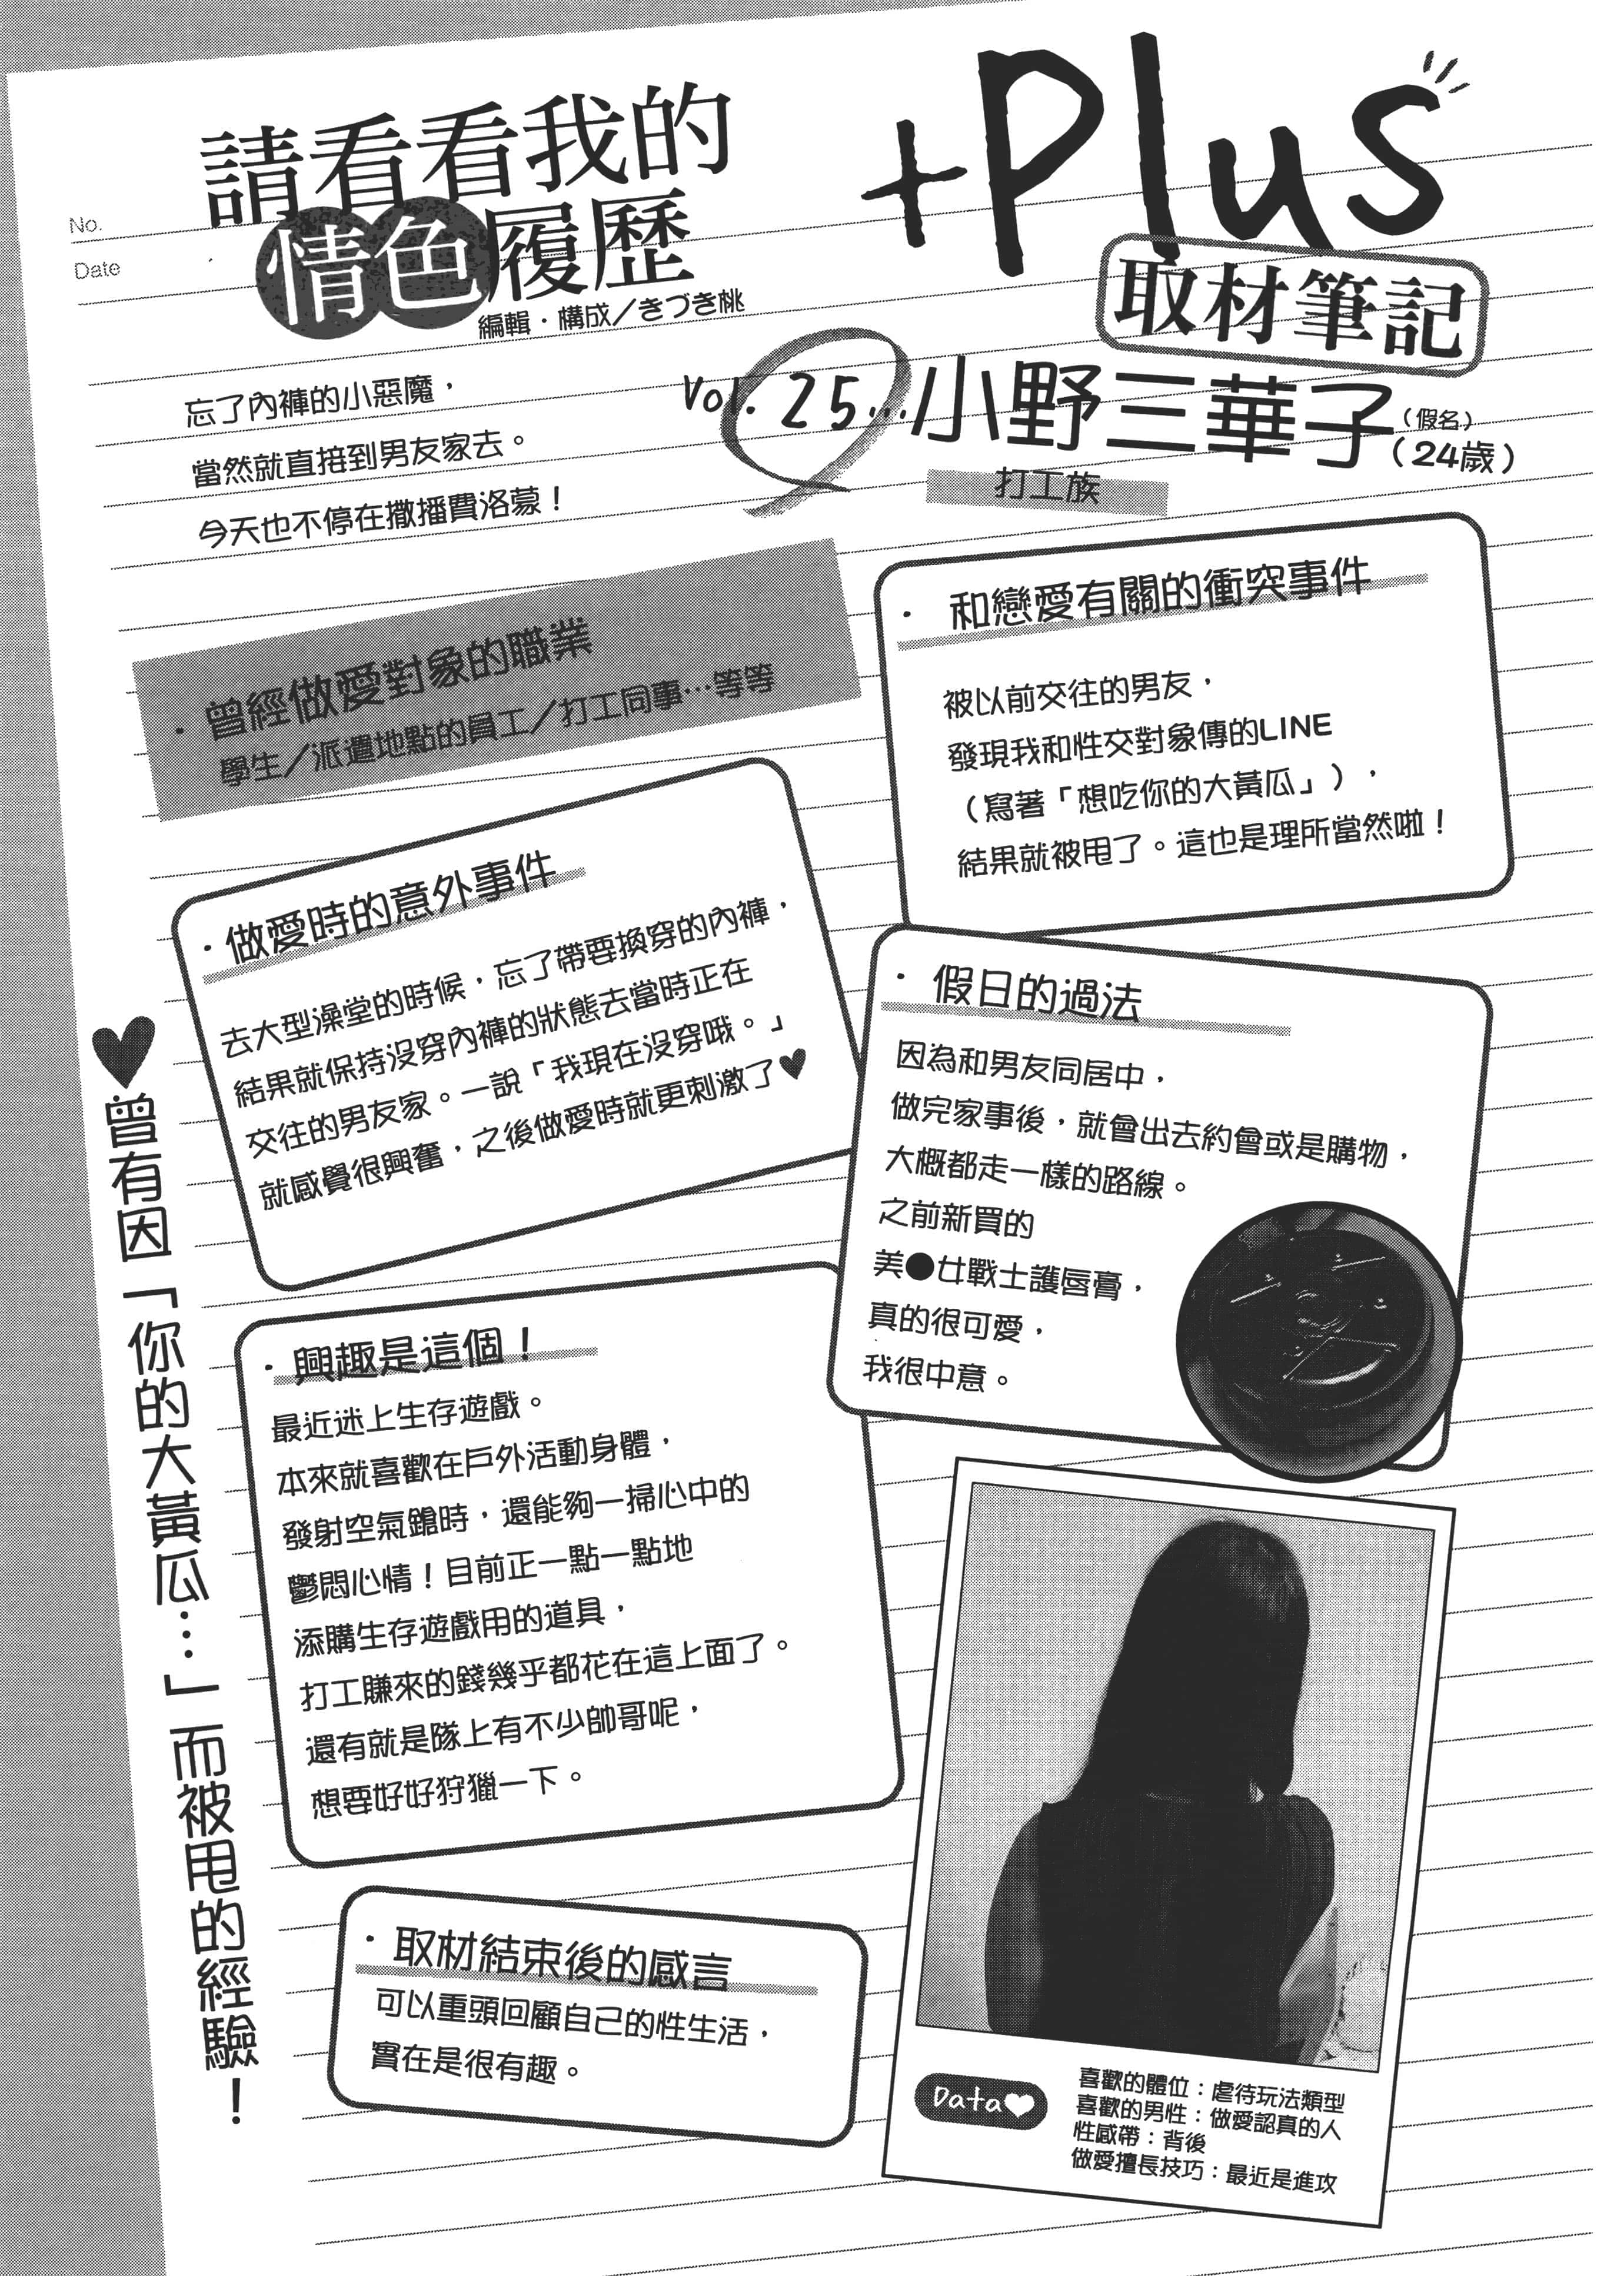 No.
Date
請看看我的
情色履歷
編輯・構成／きづき桃
+Plus
取材筆記
忘了內褲的小惡魔，
當然就直接到男友家去。
今天也不停在撒播費洛蒙！
Vol. 25…小野三華子（假名）（24歲）
打工族
・曾經做愛對象的職業
學生／派遣地點的員工／打工同事…等等
・和戀愛有關的衝突事件
被以前交往的男友，
發現我和性交對象傳的LINE
（寫著「想吃你的大黃瓜」），
結果就被甩了。這也是理所當然啦！
・做愛時的意外事件
去大型澡堂的時候，忘了帶要換穿的內褲，
結果就保持沒穿內褲的狀態去當時正在
交往的男友家。一說「我現在沒穿哦。」
就感覺很興奮，之後做愛時就更刺激了♥
・假日的過法
因為和男友同居中，
做完家事後，就會出去約會或是購物，
大概都走一樣的路線。
之前新買的
美●女戰士護唇膏，
真的很可愛，
我很中意。
♥曾有因「你的大黃瓜…」而被甩的經驗！
・興趣是這個！
最近迷上生存遊戲。
本來就喜歡在戶外活動身體，
發射空氣鎗時，還能夠一掃心中的
鬱悶心情！目前正一點一點地
添購生存遊戲用的道具，
打工賺來的錢幾乎都花在這上面了。
還有就是隊上有不少帥哥呢，
想要好好狩獵一下。
・取材結束後的感言
可以重頭回顧自己的性生活，
實在是很有趣。
Data♥
喜歡的體位：虐待玩法類型
喜歡的男性：做愛認真的人
性感帶：背後
做愛擅長技巧：最近是進攻